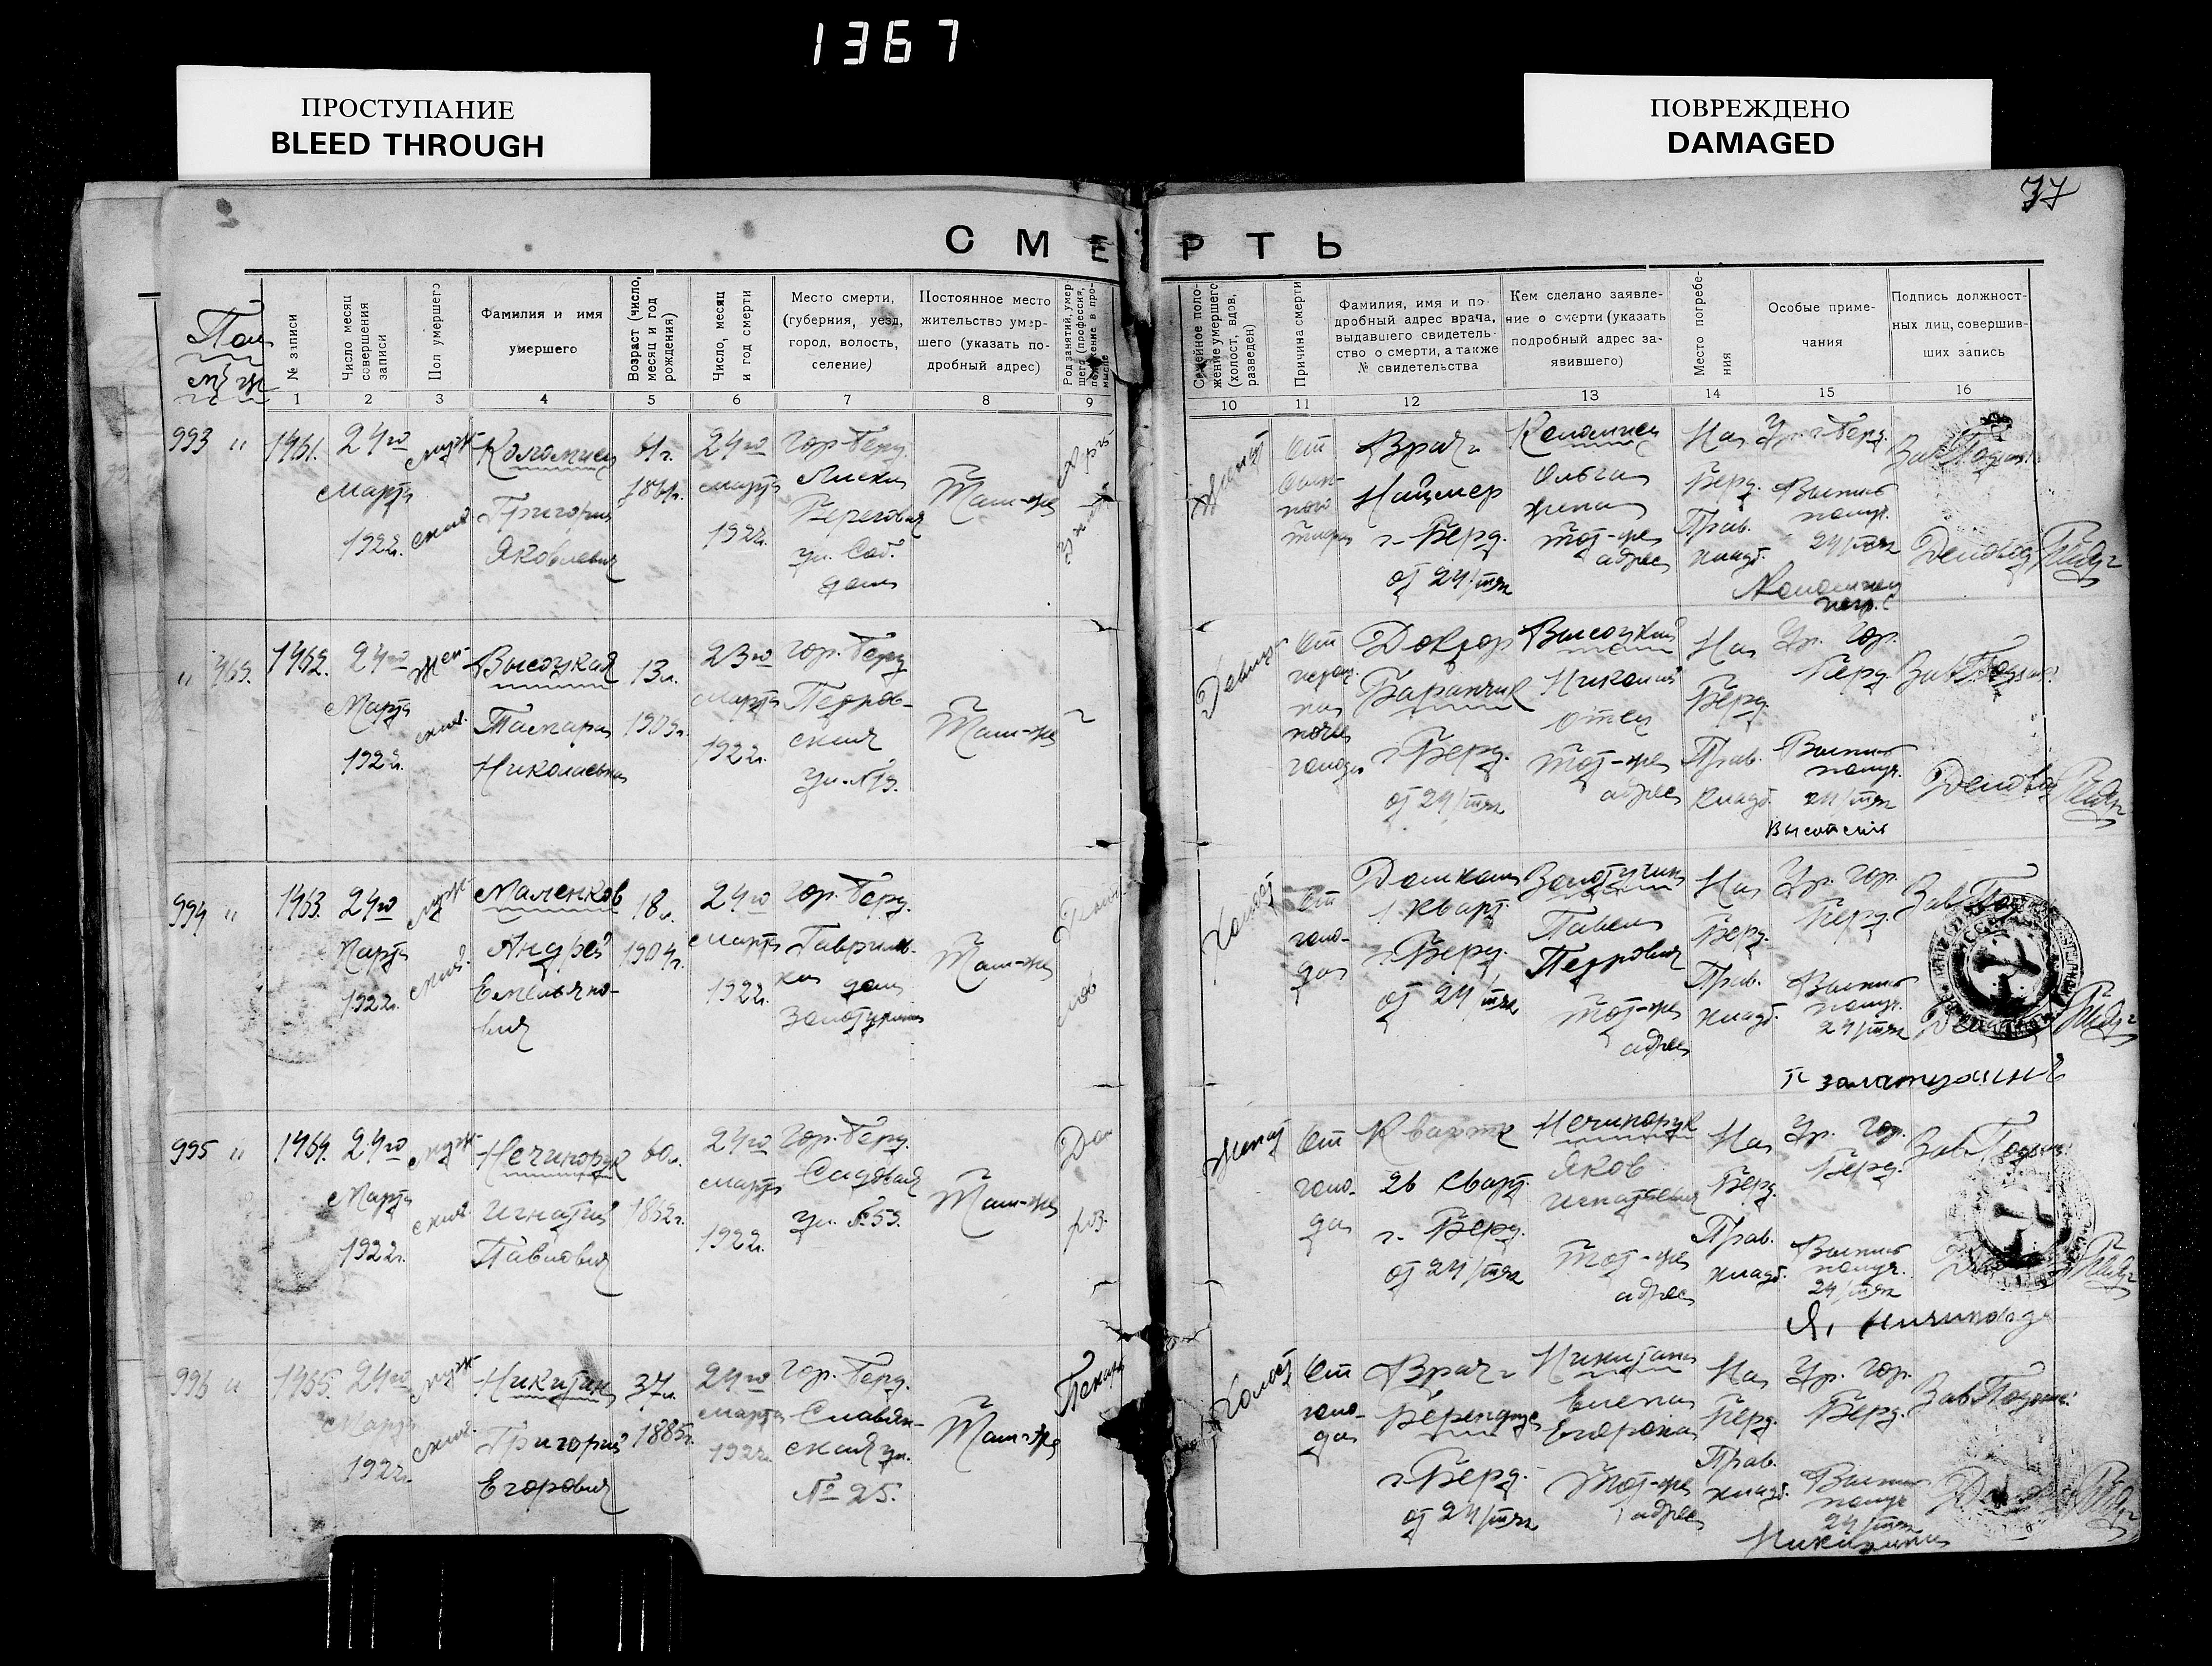 1367
ПРОСТУПАНИЕ
BLEED THROUGH
ПОВРЕЖДЕНО
DAMAGED
77
СМЕРТЬ
Пол
м ж
№ записи
Число месяц совершения записи
Пол умершего
Фамилия и имя умершего
Возраст (число, месяц и год рождения)
Число, месяц и год смерти
Место смерти, (губерния, уезд, город, волость, селение)
Постоянное место жительство умершего (указать подробный адрес)
Род занятий, умершего (профессия, положение в промысле
Семейное положение умершего (холост, вдов, разведен)
Причина смерти
Фамилия, имя и подробный адрес врача, выдавшего свидетельство о смерти, а также № свидетельства
Кем сделано заявление о смерти (указать подробный адрес заявившего)
Место погребения
Особые примечания
Подпись должностных лиц, совершивших запись
1 2 3 4 5 6 7 8 9 10 11 12 13 14 15 16
993 "
1461.
24го
Марта
1922г.
мужской
Коломиец
Григорий
Яковлевич
61г.
1861г.
24го
марта
1922г.
Гор. Берд.
Лиски
Береговая
ул. Соб.
дом
Там-же
Женат
От
Врач
Нацмер
г. Берд.
от 24/III 22
Коломиец
Ольга
жена
тот-же
адрес
На
Берд.
Прав.
кладб.
Ур. г. Берд.
Выпись
получ.
24/III 22
" 469.
1462.
24го
Марта
1922г.
Женский
Высоцкая
Тамара
Николаевна
13л.
1909г.
23го
марта
1922г.
Гор. Берд
Петровская
Там-же
Девица
От
голода
Доктор
Баранчик
г. Берд.
от 24/III 22
Высоцкий
Николай
отец
тот-же
адрес
На
Берд.
Прав.
кладб.
Ур. Гор.
Берд.
Выпись
получ.
24/III 22
994 "
1463.
24го
Марта
1922г.
мужской
Маленков
Андрей
Емельянович
18л.
1904г.
24го
марта
1922г.
Гор. Берд.
дом
Там-же
Холост
От
голода
Домком
1 кварт.
г. Берд.
от 24/III 22
Золотухин
Павел
Петрович
тот-же
адрес
На
Берд.
Прав.
кладб.
Ур. гор.
Берд.
Выпись
получ.
24/III 22
995 "
1464.
24го
Марта
1922г.
мужской
Нечипорук
Игнатий
Павлович
60л.
1862г.
24го
марта
1922г.
Гор. Берд.
Садовая
ул. № 53.
Там-же
Женат
От
голода
26 кварт.
г. Берд.
от 24/III 22
Нечипорук
Яков
Игнатьевич
тот-же
адрес
На
Берд.
Прав.
кладб.
Ур. гор.
Берд.
Выпись
получ.
24/III 22
996 "
1465.
24го
Марта
1922г.
мужской
Никитин
Григорий
Егорович
37л.
1885г.
24го
марта
1922г.
Гор. Берд.
Славянская ул.
№ 25.
Там-же
Пекарь
Холост
От
голода
Врач
г. Берд.
от 24/III 22
Никитина
Елена
тот-же
адрес
На
Берд.
Прав.
кладб.
Ур. гор.
Берд.
Выпись
получ.
24/III 22
Никитина